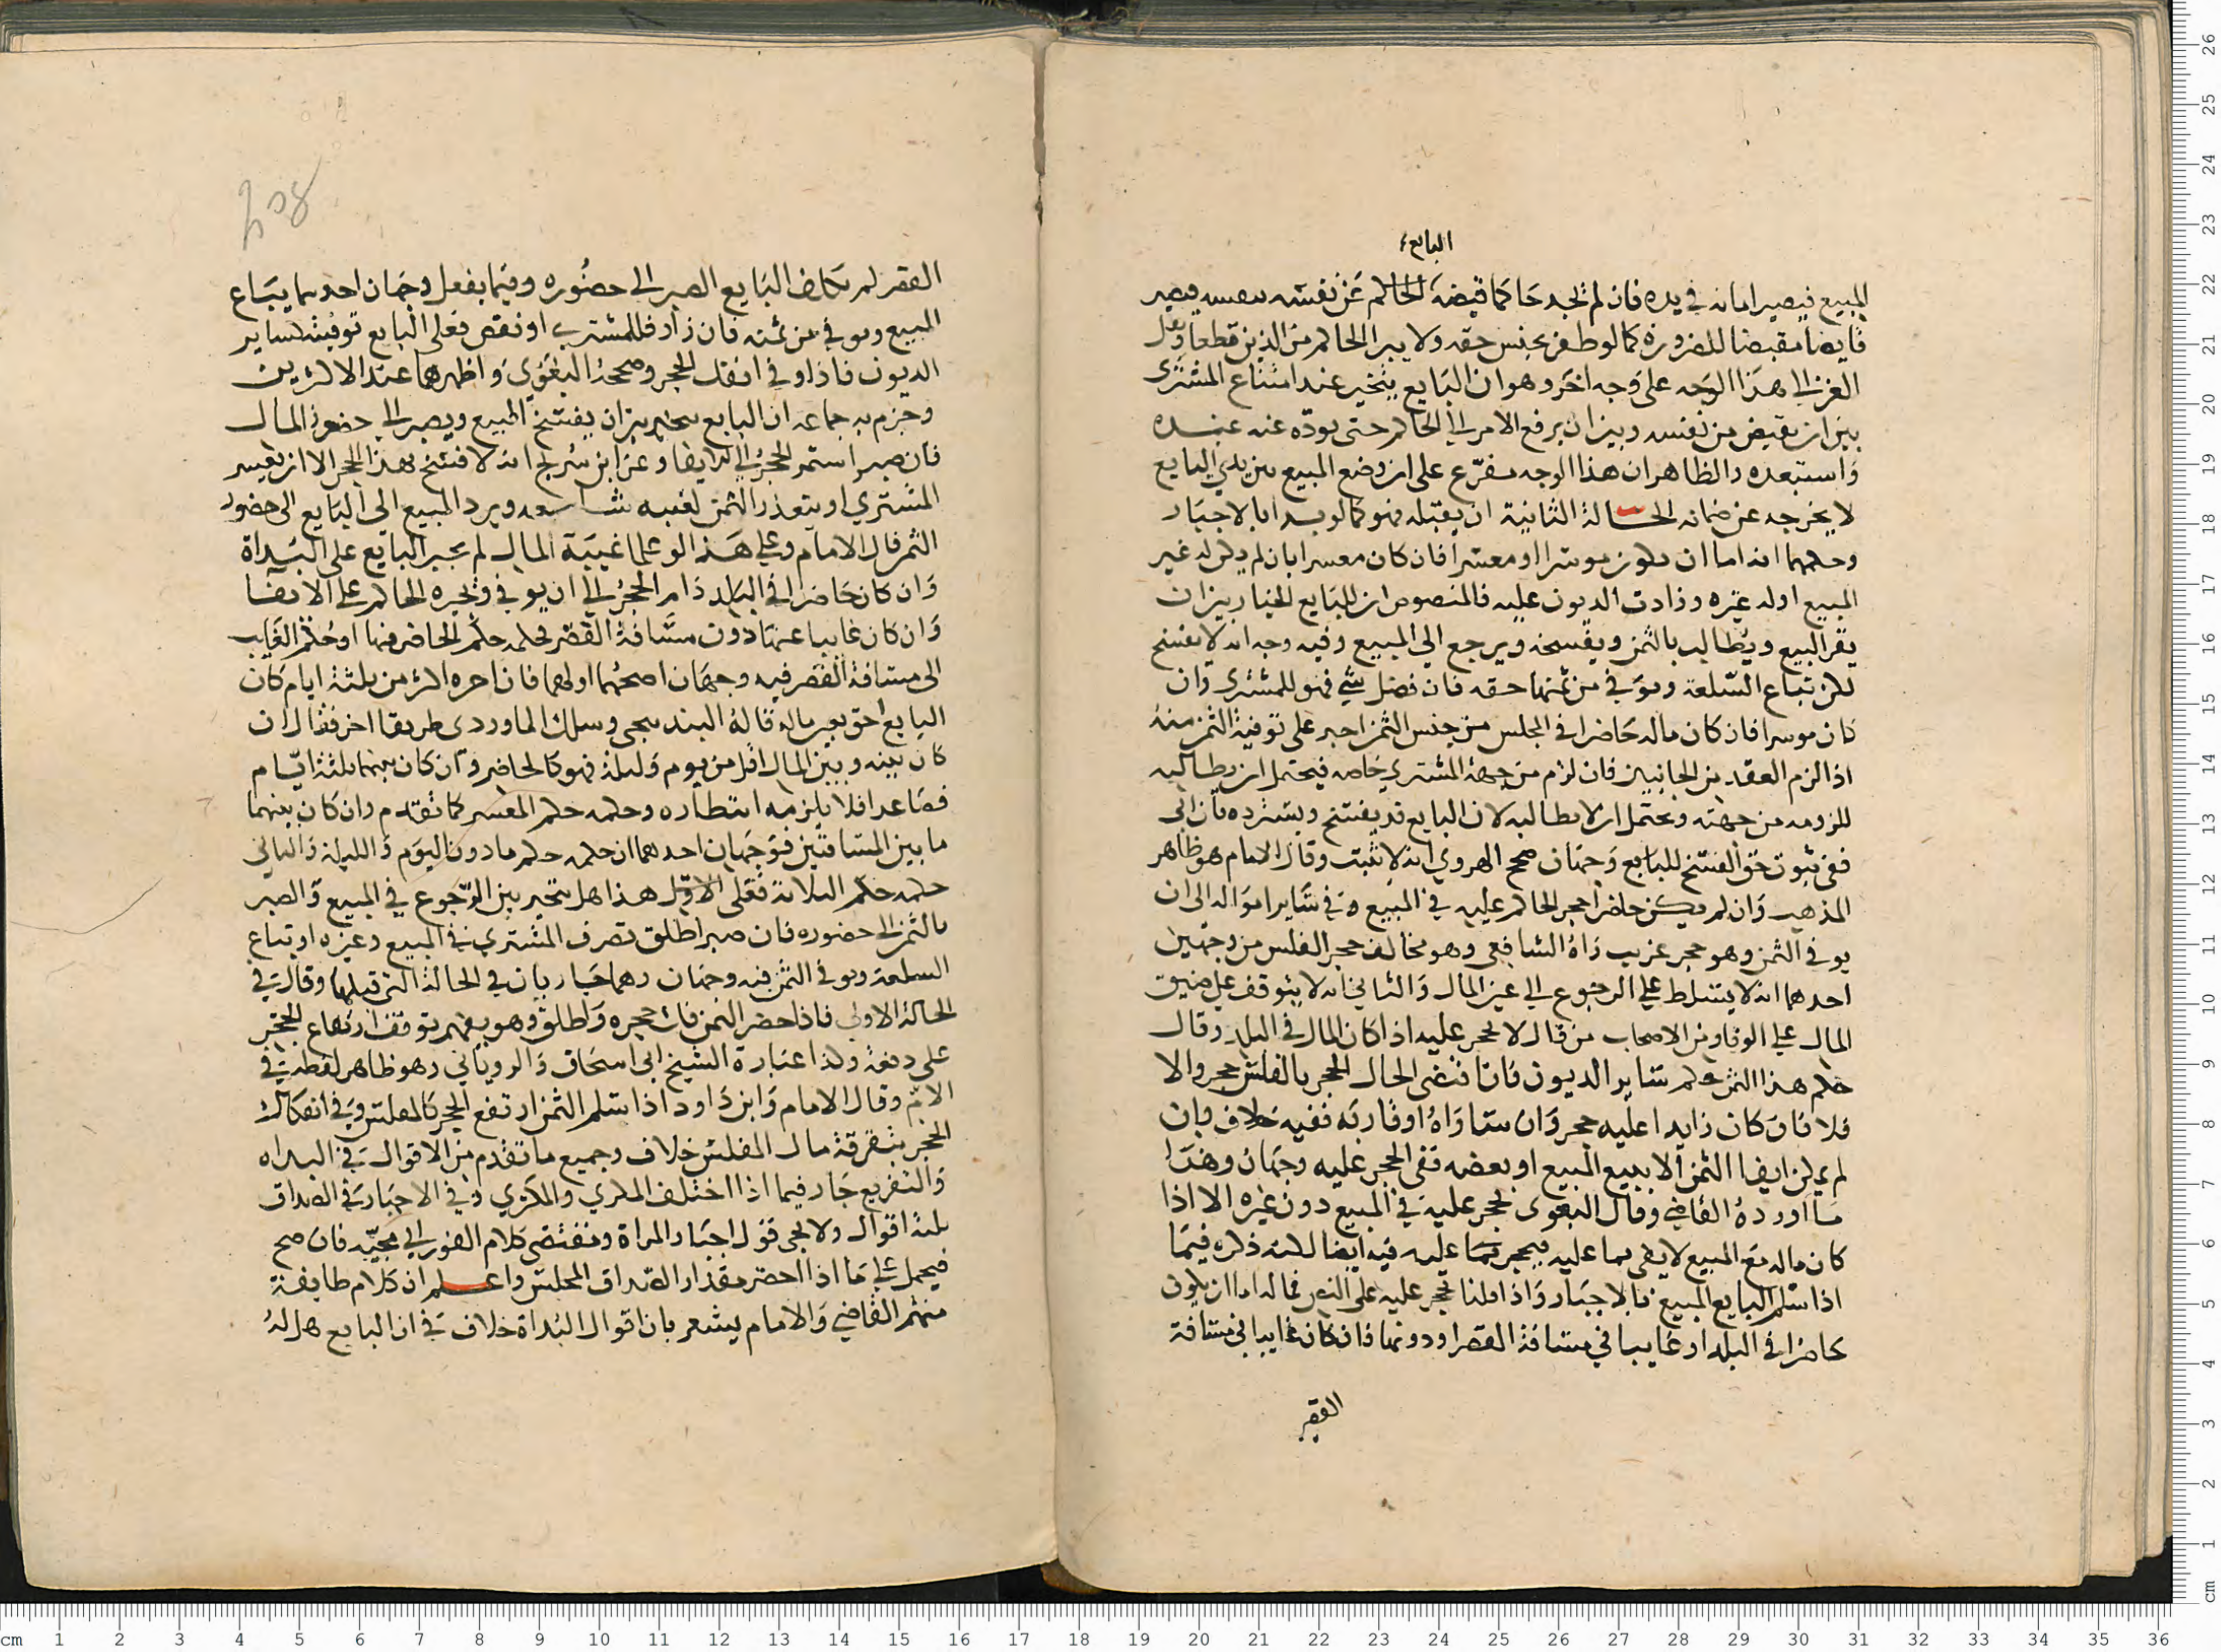 البايع
المبيع فيصير امانه في يده فان لم نجد حاكما قبضه الحاكم عن نفسه بنفسه فيصير
قابضا مقبضا للضرورة كما لو ظفر بجنس حقه ولا يبرا الحاكم من الدين قطعا ونقل
الغزالي هذا الوجه على وجه اخر وهو ان البايع يتخير عند امتناع المشترى
بين ان يقبض من نفسه وبين ان يرفع الامر الى الحاكم حتى يودعه عنه عنده
واستبعده والظاهر ان هذا الوجه مفرّع على ان وضع المبيع بين يدي البايع
لا يخرجه عن ضمانه الحالة الثانية ان يقبله فهو كما لو بدا بالاجبار
وحكمهما انه اما ان يكون موسرا او معسرا فان كان معسرا بان لم يكن له غير
المبيع او له غيره وزادت الديون عليه فالمنصوص ان للبايع الخيار بين ان
يقر البيع ويطالب بالثمن ويفسخه ويرجع الي المبيع وفيه وجه انه لا يفسخ
لكن تباع السلعة ويوفي من ثمنها حقه فان فضل شي فهو للمشتري وان
كان موسرا فان كان ماله حاضرا في المجلس من جنس الثمن اجبر على توفية الثمن منه
اذا لزم العقد من الجانبين فان لزم من جهة المشتري خاصه فيحتمل ان يطالبه
للزومه من جهته ويحتمل ان لا يطالبه لان البايع قد يفسخ ويسترده فان ابى
ففي ثبوت حق الفسخ للبايع وجهان صحح الهروي انه لا يثبت وقال الامام هو ظاهر
المذهب وان لم يكن حاضرا حجر الحاكم عليه في المبيع وفي ساير امواله الى ان
يوفي الثمن وهو حجر غريب راه الشافعي وهو مخالف حجر الفلس من وجهين
احدهما انه لا يتسلط على الرجوع الى عين المال والثاني انه لا يتوقف على ضيق
المال على الوفا ومن الاصحاب من قال لا يحجر عليه اذا كان المال في البلد وقال
حكم هذا الثمن حكم ساير الديون فان اقتضى الحال الحجر بالفلس حجر والا
فلا فان كان زايدا عليه حجر وان ساواه او قاربه ففيه خلاف وان
لم يمكن ايفا الثمن الا ببيع المبيع او بعضه ففي الحجر عليه وجهان وهذا
ما اورده القاضي وقال البغوى يحجر عليه في المبيع دون غيره الا اذا
كان ماله مع المبيع لا يفي بما عليه فيحجر عليه فيه ايضا لكنه ذكره فيما
اذا سلم البايع المبيع بالاجبار واذا قلنا يحجر عليه على النص فماله اما ان يكون
حاضرا في البلد او غايبا في مسافة القصر او دونها فان كان غايبا في مسافة
القصر
القصر لم يكلف البايع الصبر الى حضوره وفيما يفعل وجهان احدهما يباع
المبيع ويوفي من ثمنه فان زاد فللمشتري او نقص فعلى البايع توفيته كساير
الديون فاذا وفي انفك الحجر وصححه البغوي واظهرهما عند الاكثرين
وجزم به جماعه ان البايع يتخير بين ان يفسخ المبيع ويصبر الى حضور المال
فان صبر استمر الحجر الى الايفا وعن ابن سريج انه لا فسخ بهذا الحجر الا ان يفلس
المشتري او يتعذر الثمن لغيبه شاسعه ويرد المبيع الى البايع الى حضور
الثمن قال الامام وعلى هذا لو علما غيبة المال لم يجبر البايع على البداة
وان كان حاضرا في البلد دام الحجر الى ان يوفي ويجبره الحاكم على الايفا
وان كان غايبا عنها دون مسافة القصر فحكمه حكم الحاضر فيها او حكم الغايب
الى مسافة القصر فيه وجهان اصحهما اولهما فان اخره اكثر من ثلثة ايام كان
البايع احق بعين ماله قاله البندنيجي وسلك الماوردى طريقا اخر فقال ان
كان بينه وبين المال اقل من يوم وليلة فهو كالحاضر وان كان بينهما ثلثة ايام
فصاعدا فلا يلزمه انتظاره وحكمه حكم المعسر كما تقدم وان كان بينهما
ما بين المسافتين فوجهان احدهما ان حكمه حكم ما دون اليوم والليلة والثاني
حكمه حكم الثلاثة فعلى الاول هذا هل يتخير بين الرجوع في المبيع والصبر
بالثمن الى حضوره فان صبر اطلق تصرف المشتري في المبيع وغيره او تباع
السلعة ويوفي الثمن فيه وجهان وهما جاريان في الحالة التي قبلها وقال في
الحالة الاولى فاذا حضر الثمن فات حجره واطلق وهو يفهم توقف ارتفاع الحجر
على دفعه وكذا عبارة الشيخ ابي اسحاق والروياني وهو ظاهر لفظه في
الام وقال الامام وابن داود اذا سلم الثمن ارتفع الحجر كالمفلس وفي انفكاك
الحجر بتفرقة مال المفلس خلاف وجميع ما تقدم من الاقوال في البداه
والتفريع جار فيما اذا اختلف المكري والمكتري وفي الاجبار في الصداق
ثلثة اقوال ولا يجى قول اجبار المراة ومقتضى كلام الفوراني مجيّه فان صح
فيحمل على ما اذا احضر مقدار الصداق المجلس واعلم ان كلام طايفة
منهم القاضي والامام يشعر بان اقوال البداة خلاف في ان البايع هل له